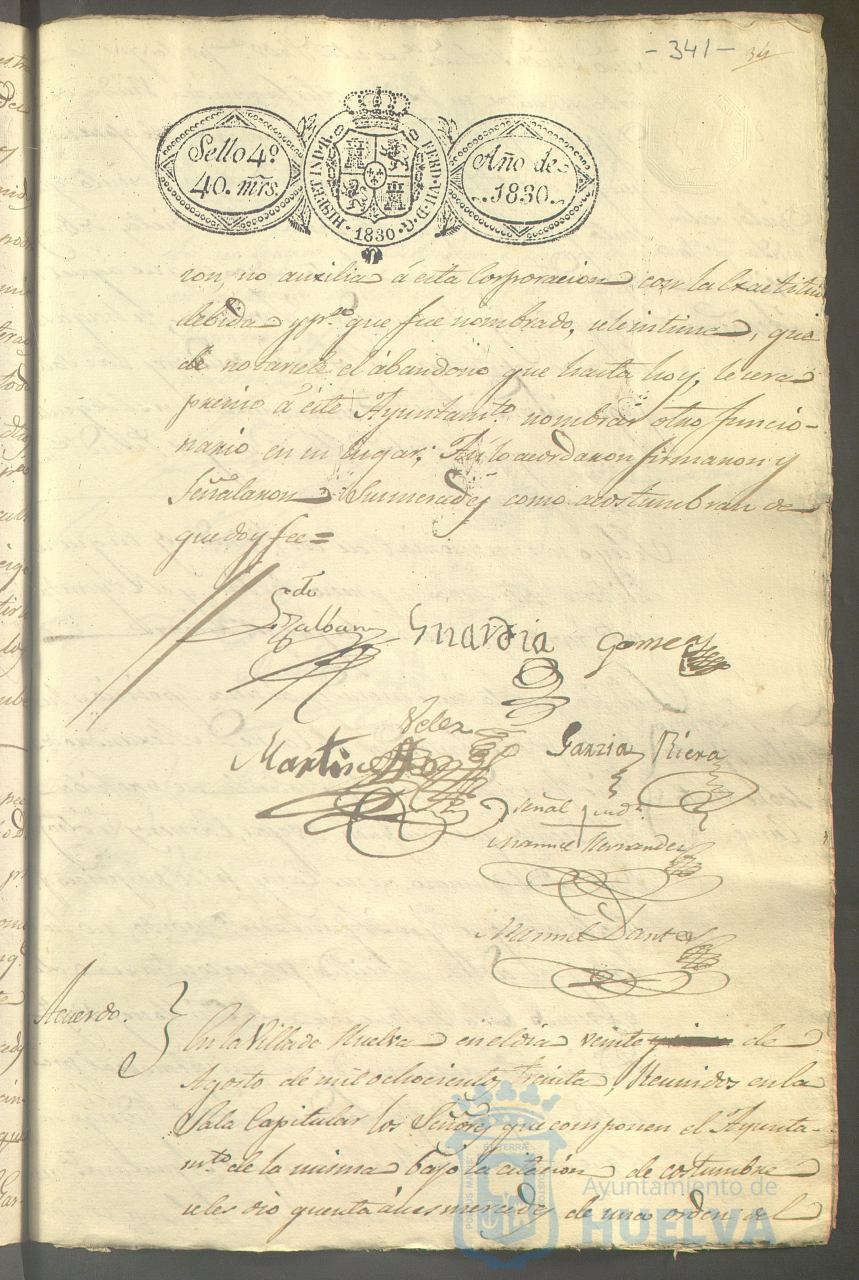 - 341 -
34
Sello 4º.
40. mrs.
HISPET IND.R. FERD.VII.D.G.
· 1830 ·
Año de
1830.
ron, no auxilia á esta Corporacion con la Exactitud
debida y pª. que fue nombrado, se le intima, que
de no variar el ábandono que hasta hoy, le sera
preciso á este Ayuntamto. nombrar otro funcio-
nario en su lugar; Asi lo acordaron firmaron y
Señalaron Sumercedes como acostumbran de
que doy fee=
Guardia
Gomez
Velez
Martinez
Garzia
Riera
Señal
Manuel Hernandez
Manuel
Acuerdo.
En la Villa de Huelva en el dia veinte de
Agosto de mil ochocientos treinta, Reunidos en la
Sala Capitular los Señores que componen el Ayunta-
mto. de la misma bajo la citacion de costumbre
se les dio quenta á sus mercedes de una orden del
Ayuntamiento de
HUELVA